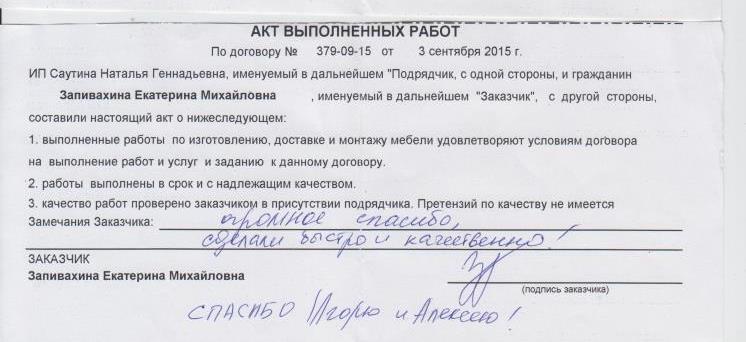 АКТ ВЫПОЛНЕННЫХ РАБОТ
По договору № 379-09-15 от 3 сентября 2015 г.
ИП Саутина Наталья Геннадьевна, именуемый в дальнейшем "Подрядчик, с одной стороны, и гражданин
Запивахина Екатерина Михайловна , именуемый в дальнейшем "Заказчик", с другой стороны,
составили настоящий акт о нижеследующем:
1. выполненные работы по изготовлению, доставке и монтажу мебели удовлетворяют условиям договора
на выполнение работ и услуг и заданию к данному договору.
2. работы выполнены в срок и с надлежащим качеством.
3. качество работ проверено заказчиком в присутствии подрядчика. Претензий по качеству не имеется
Замечания Заказчика: огромное спасибо,
сделали быстро и качественно!
ЗАКАЗЧИК
Запивахина Екатерина Михайловна
(подпись заказчика)
СПАСИБО Игорю и Алексею!